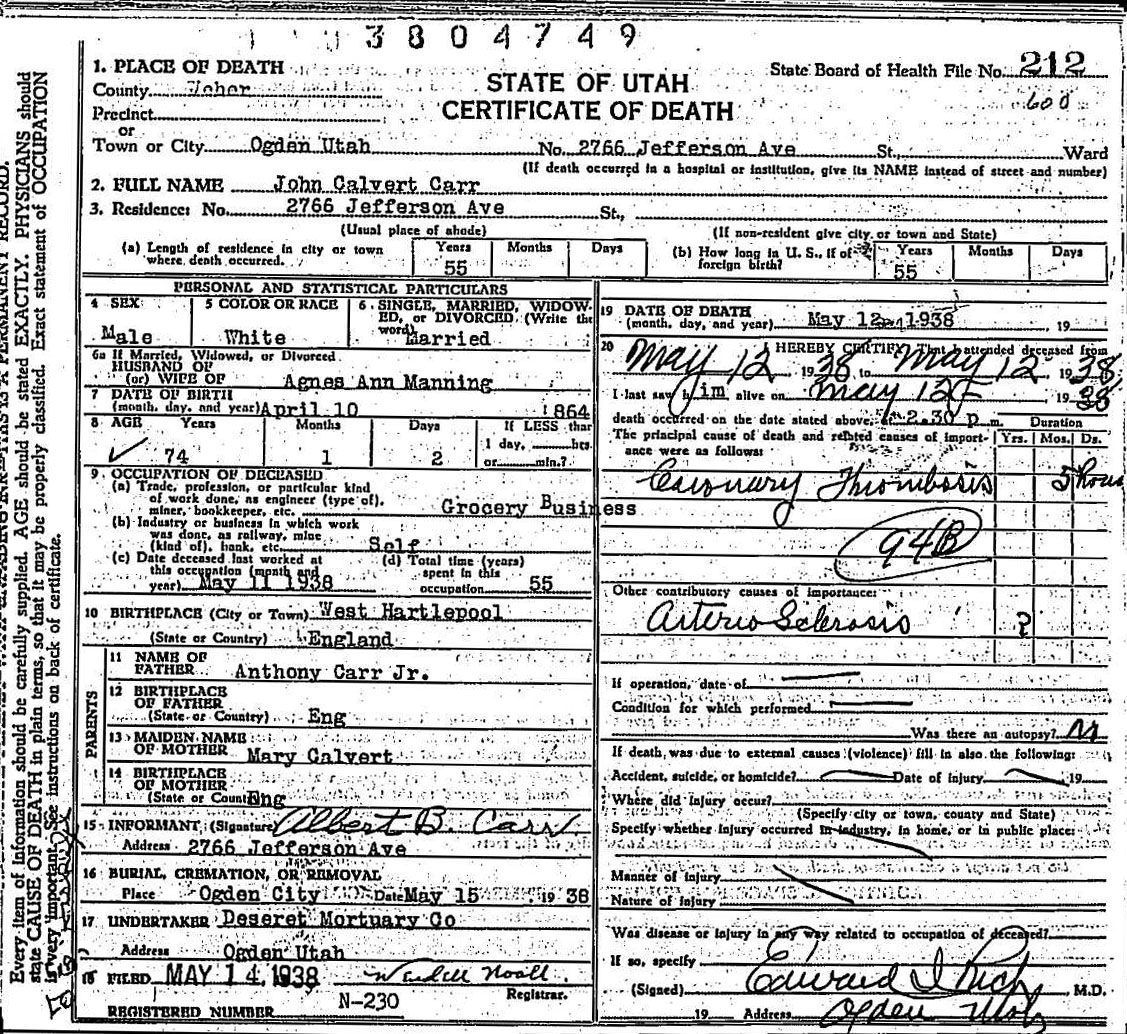 3 8 0 4 7 4 9
1. PLACE OF DEATH
STATE OF UTAH
CERTIFICATE OF DEATH
State Board of Health File No. 212
600
County Weber
Precinct
or
Town or City Ogden Utah No. 2766 Jefferson Ave St., Ward
(If death occurred in a hospital or institution, give its NAME instead of street and number)
2. FULL NAME John Calvert Carr
3. Residence: No. 2766 Jefferson Ave St.,
(Usual place of abode) (If non-resident give city or town and State)
(a) Length of residence in city or town where death occurred. Years 55 Months Days
(b) How long in U. S., if of foreign birth? Years 55 Months Days
PERSONAL AND STATISTICAL PARTICULARS
4 SEX Male
5 COLOR OR RACE White
6 SINGLE, MARRIED, WIDOWED, or DIVORCED (Write the word) Married
6a If Married, Widowed, or Divorced
HUSBAND OF
(or) WIFE OF Agnes Ann Manning
7 DATE OF BIRTH
(month, day, and year) April 10 1864
8 AGE Years 74 Months 1 Days 2
If LESS than 1 day, hrs. or min.?
9 OCCUPATION OF DECEASED
(a) Trade, profession, or particular kind
of work done, as engineer (type of),
miner, bookkeeper, etc. Grocery Business
(b) Industry or business in which work
was done, as railway, mine
(kind of), bank, etc. Self
(c) Date deceased last worked at
this occupation (month and
year) May 11 1938
(d) Total time (years)
spent in this
occupation 55
10 BIRTHPLACE (City or Town) West Hartlepool
(State or Country) England
PARENTS
11 NAME OF
FATHER Anthony Carr Jr.
12 BIRTHPLACE
OF FATHER
(State or Country) Eng
13 MAIDEN NAME
OF MOTHER Mary Calvert
14 BIRTHPLACE
OF MOTHER
(State or Country) Eng
15 INFORMANT (Signature Albert B. Carr
Address 2766 Jefferson Ave
16 BURIAL, CREMATION, OR REMOVAL
Place Ogden City Date May 15 19 38
17 UNDERTAKER Deseret Mortuary Co
Address Ogden Utah
18 FILED MAY 14 1938 Wendell Noall.
Registrar.
N-230
REGISTERED NUMBER
19 DATE OF DEATH
(month, day, and year) May 12, 1938 19
20 I HEREBY CERTIFY That I attended deceased from
May 12 1938 to May 12 1938
I last saw him alive on May 12 1938
death occurred on the date stated above, at 2.30 p m.
Duration
The principal cause of death and related causes of importance were as follows: Yrs. Mos. Ds.
Coronary Thrombosis 5 hours
94B
Other contributory causes of importance:
Arterio Sclerosis ?
If operation, date of
Condition for which performed
Was there an autopsy?
If death was due to external causes (violence) fill in also the following:
Accident, suicide, or homicide? Date of injury 19
Where did injury occur?
(Specify city or town, county and State)
Specify whether injury occurred in industry, in home, or in public place:
Manner of injury
Nature of injury
Was disease or injury in any way related to occupation of deceased?
If so, specify
(Signed) Edward I Rich, M.D.
19 Address Ogden Utah
Every item of information should be carefully supplied. AGE should be stated EXACTLY. PHYSICIANS should
state CAUSE OF DEATH in plain terms, so that it may be properly classified. Exact statement of OCCUPATION
is very important. See instructions on back of certificate.